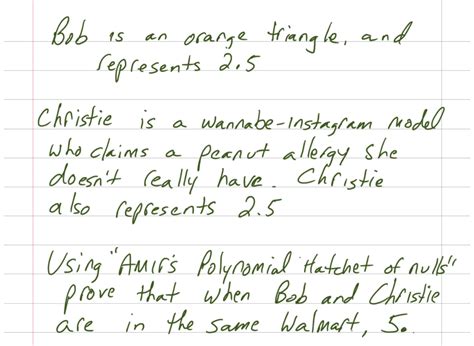 Bob is an orange triangle, and
represents 2.5
Christie is a wannabe-instagram model
who claims a peanut allergy she
doesn't really have. Christie
also represents 2.5
Using "AMIR's Polynomial Hatchet of nulls"
prove that when Bob and Christie
are in the same Walmart, 5.